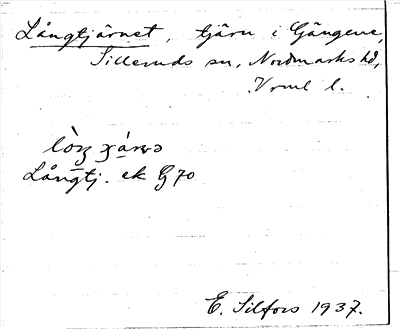 Långtjärnet, tjärn i Gängene,
Silleruds sn, Nordmarks hd,
Vrml l.
Långtj. ek G 70
E. Silfors 1937.